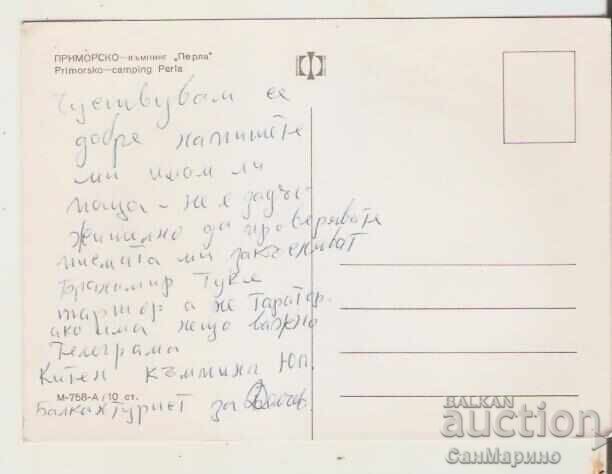 ПРИМОРСКО—къмпинг „Перла"
Primorsko—camping Perla
Чуствувам се
добре напишете
ми имам ли
поща – не е задъл-
жително да проверявате
писмата ми закъсняват
Бранимир Тукя
маршор а не Таратор.
ако има нещо важно
телеграма
Китен къмпинг Юг.
М-758-А / 10 ст.
Балкантурист за
BALKAN
auction
СанМарино